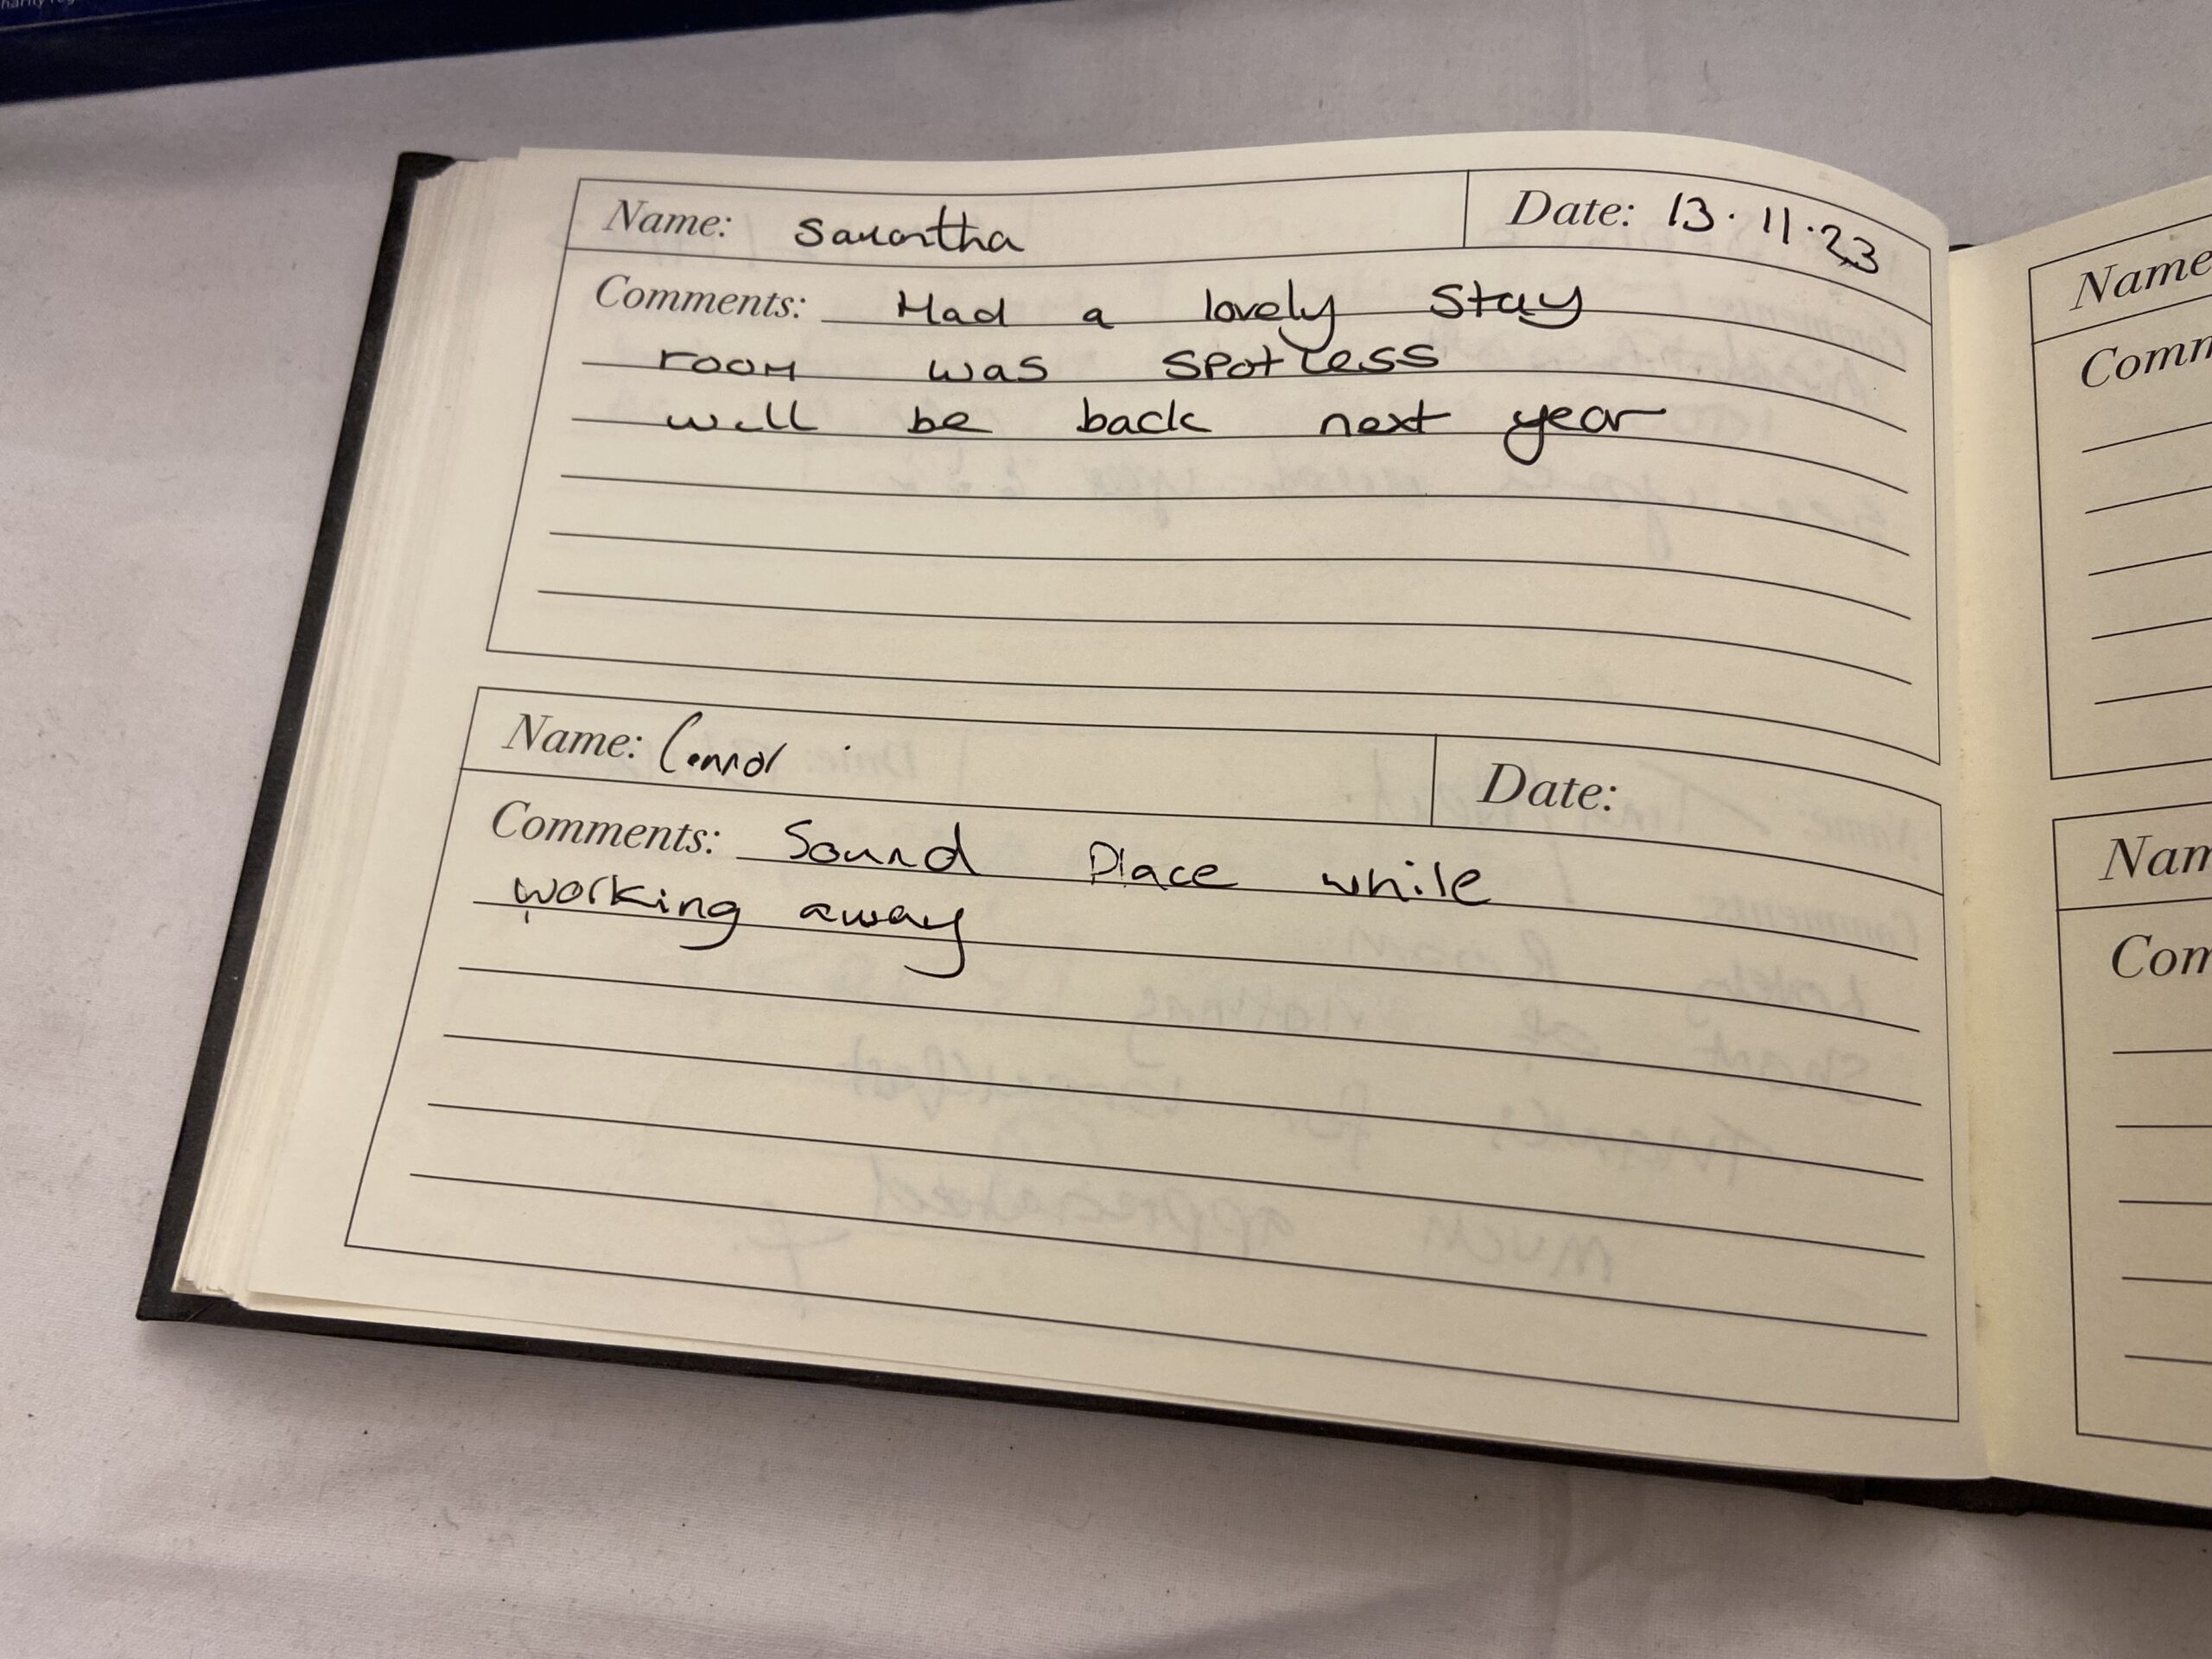 Name: Samantha Date: 13.11.23
Comments: Had a lovely stay
room was spotless
will be back next year
Name: Connor Date:
Comments: Sound Place while
working away
Name
Comm
Nam
Com